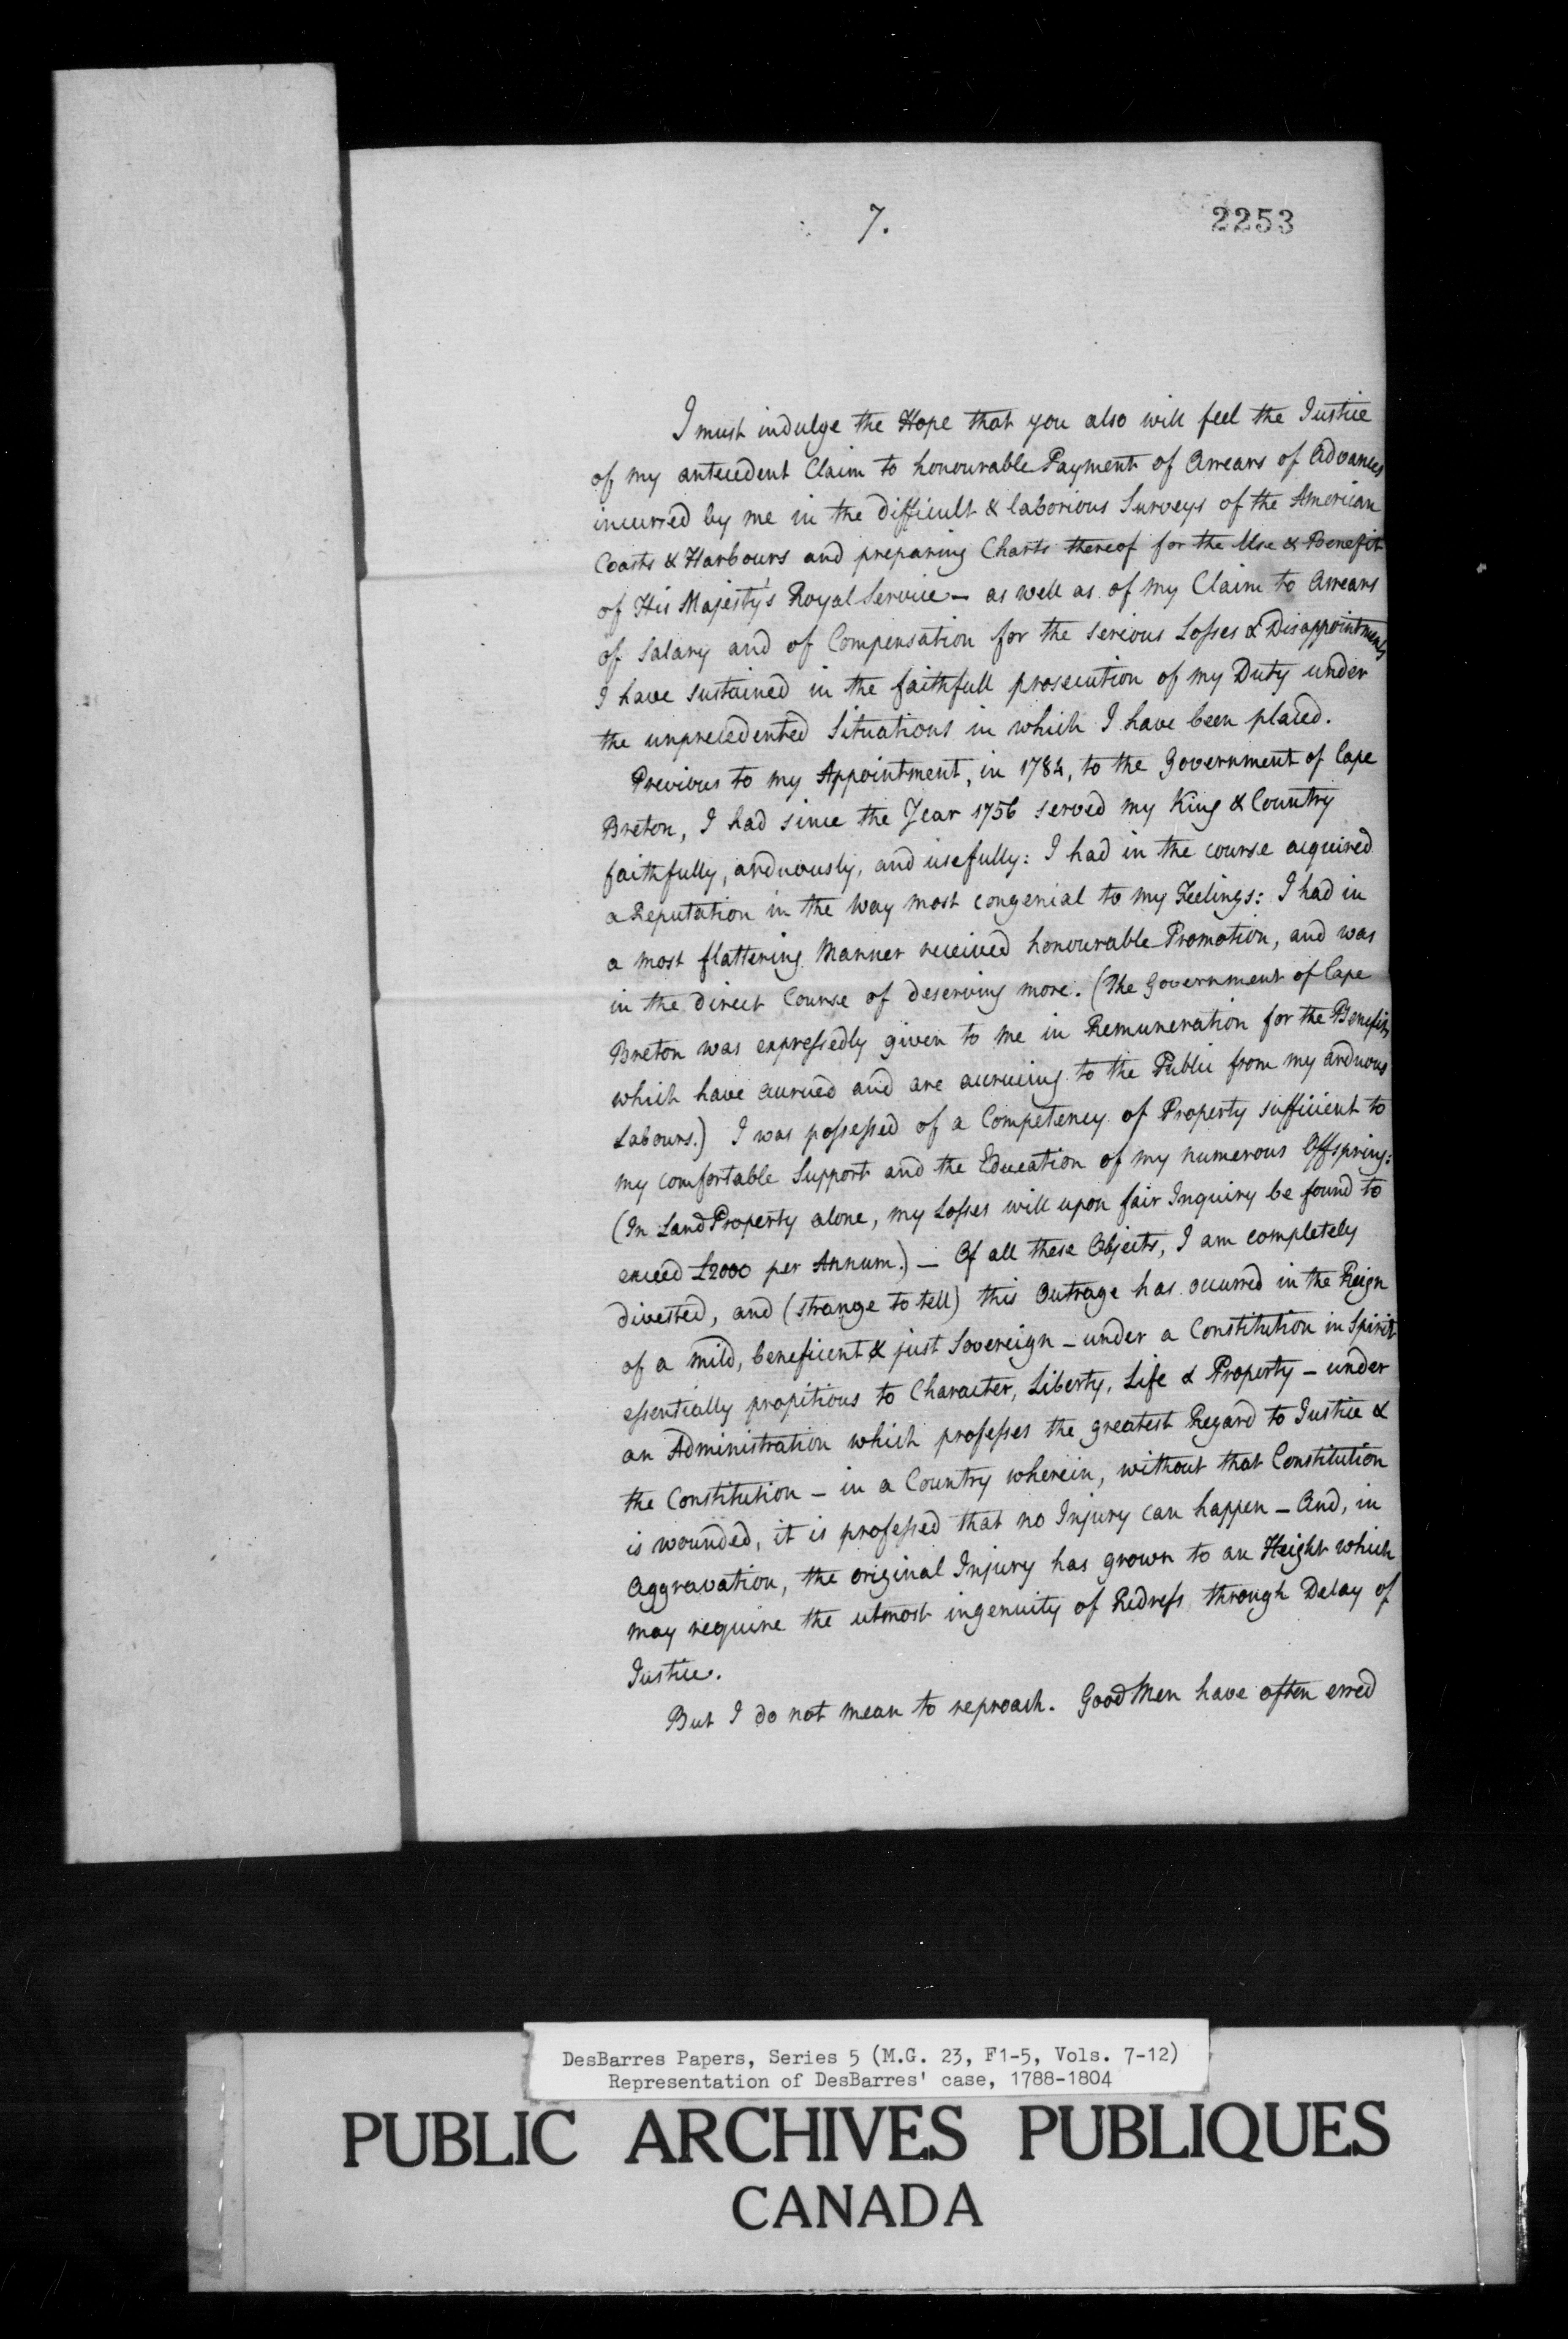 7.
2253
I must indulge the Hope that you also will feel the Justice
of my antecedent Claim to honourable Payment of Arrears of Advances
incurred by me in the difficult & laborious Surveys of the American
Coasts & Harbours and preparing Charts thereof for the Use & Benefit
of His Majesty's Royal Service — as well as of my Claim to Arrears
of Salary and of Compensation for the serious Losses & Disappointments
I have sustained in the faithfull prosecution of my Duty under
the unprecedented Situations in which I have been placed.
Previous to my Appointment, in 1784, to the Government of Cape
Breton, I had since the Year 1756 served my King & Country
faithfully, arduously, and usefully: I had in the course acquired
a Reputation in the way most congenial to my Feelings: I had in
a most flattering Manner received honourable Promotion, and was
in the direct Course of deserving more. (The Government of Cape
Breton was expressedly given to me in Remuneration for the Benefits
which have accrued and are accrueing to the Public from my arduous
Labours.) I was possessed of a Competency of Property sufficient to
my comfortable Support and the Education of my numerous Offspring:
(In Land Property alone, my Losses will upon fair Inquiry be found to
exceed £2000 per Annum.) — Of all these Objects, I am completely
divested, and (strange to tell) this Outrage has occurred in the Reign
of a mild, beneficent & just Sovereign — under a Constitution in Spirit
essentially propitious to Character, Liberty, Life & Property — under
an Administration which professes the greatest Regard to Justice &
the Constitution — in a Country wherein, without that Constitution
is wounded, it is professed that no Injury can happen — And, in
Aggravation, the original Injury has grown to an Height which
may require the utmost ingenuity of Redress through Delay of
Justice.
But I do not mean to reproach. Good Men have often erred
DesBarres Papers, Series 5 (M.G. 23, F1-5, Vols. 7-12)
Representation of DesBarres' case, 1788-1804
PUBLIC ARCHIVES PUBLIQUES
CANADA